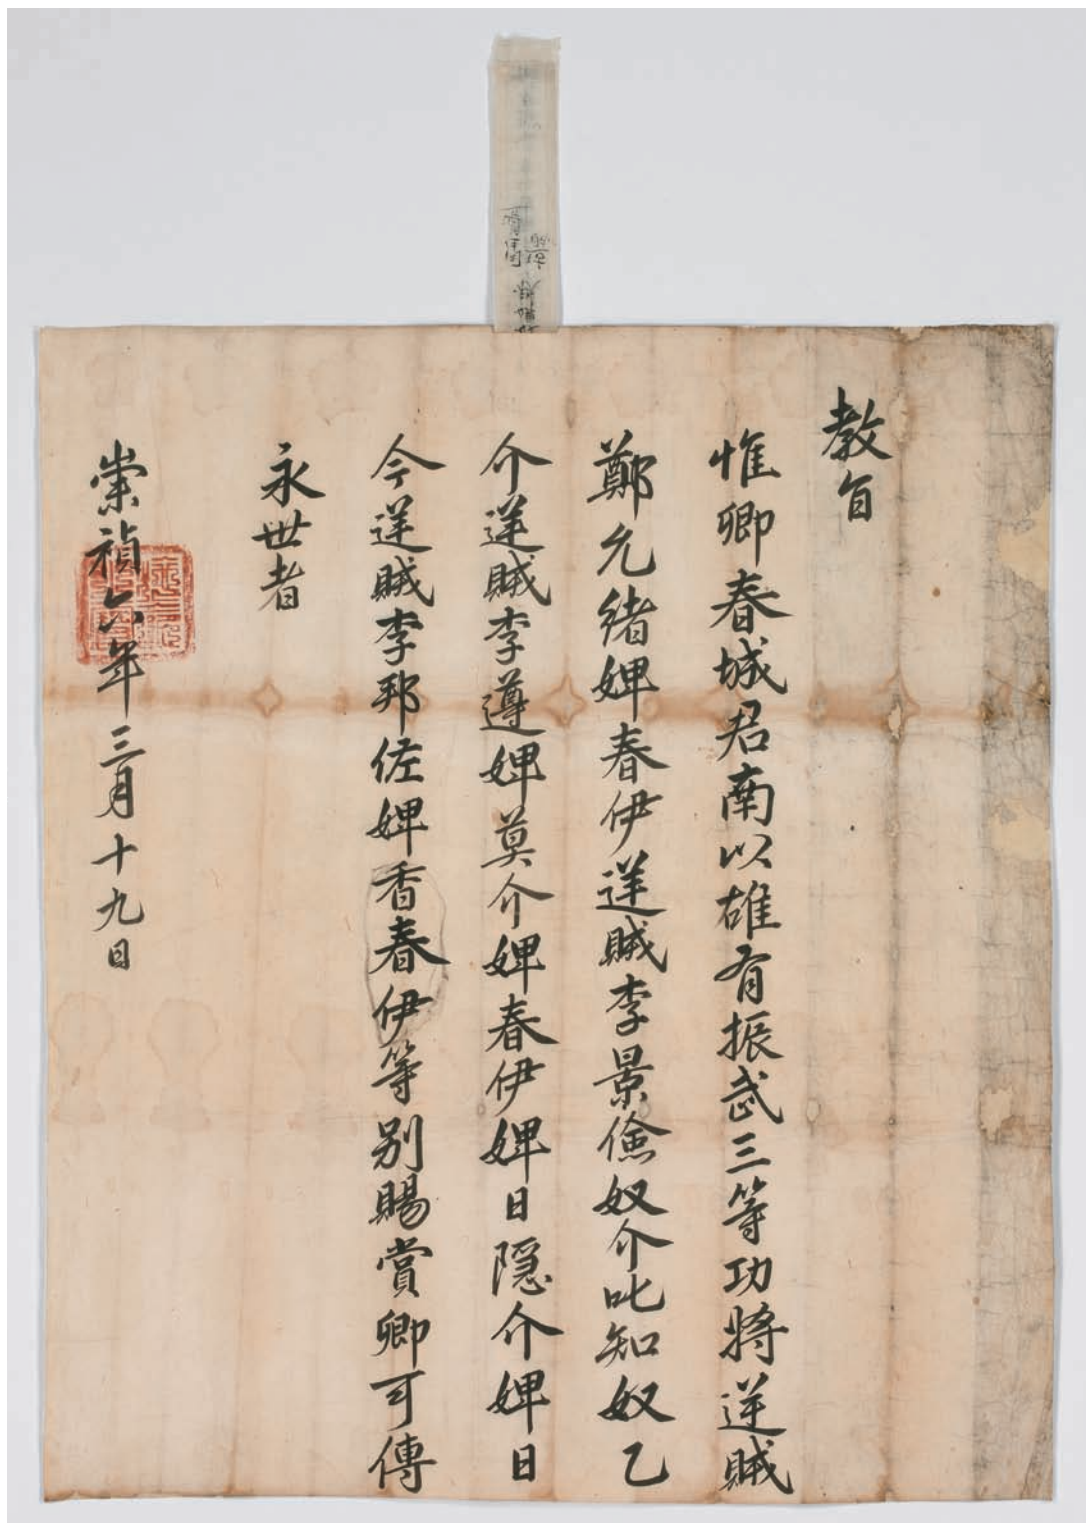 教旨
惟卿春城君南以雄有振武三等功將逆賊
鄭允緖婢春伊逆賊李景儉奴介叱知奴乙
介逆賊李遵婢莫介婢春伊婢日隠介婢日
今逆賊李邦佐婢香春伊等別賜賞卿可傳
永世者
崇禎六年三月十九日